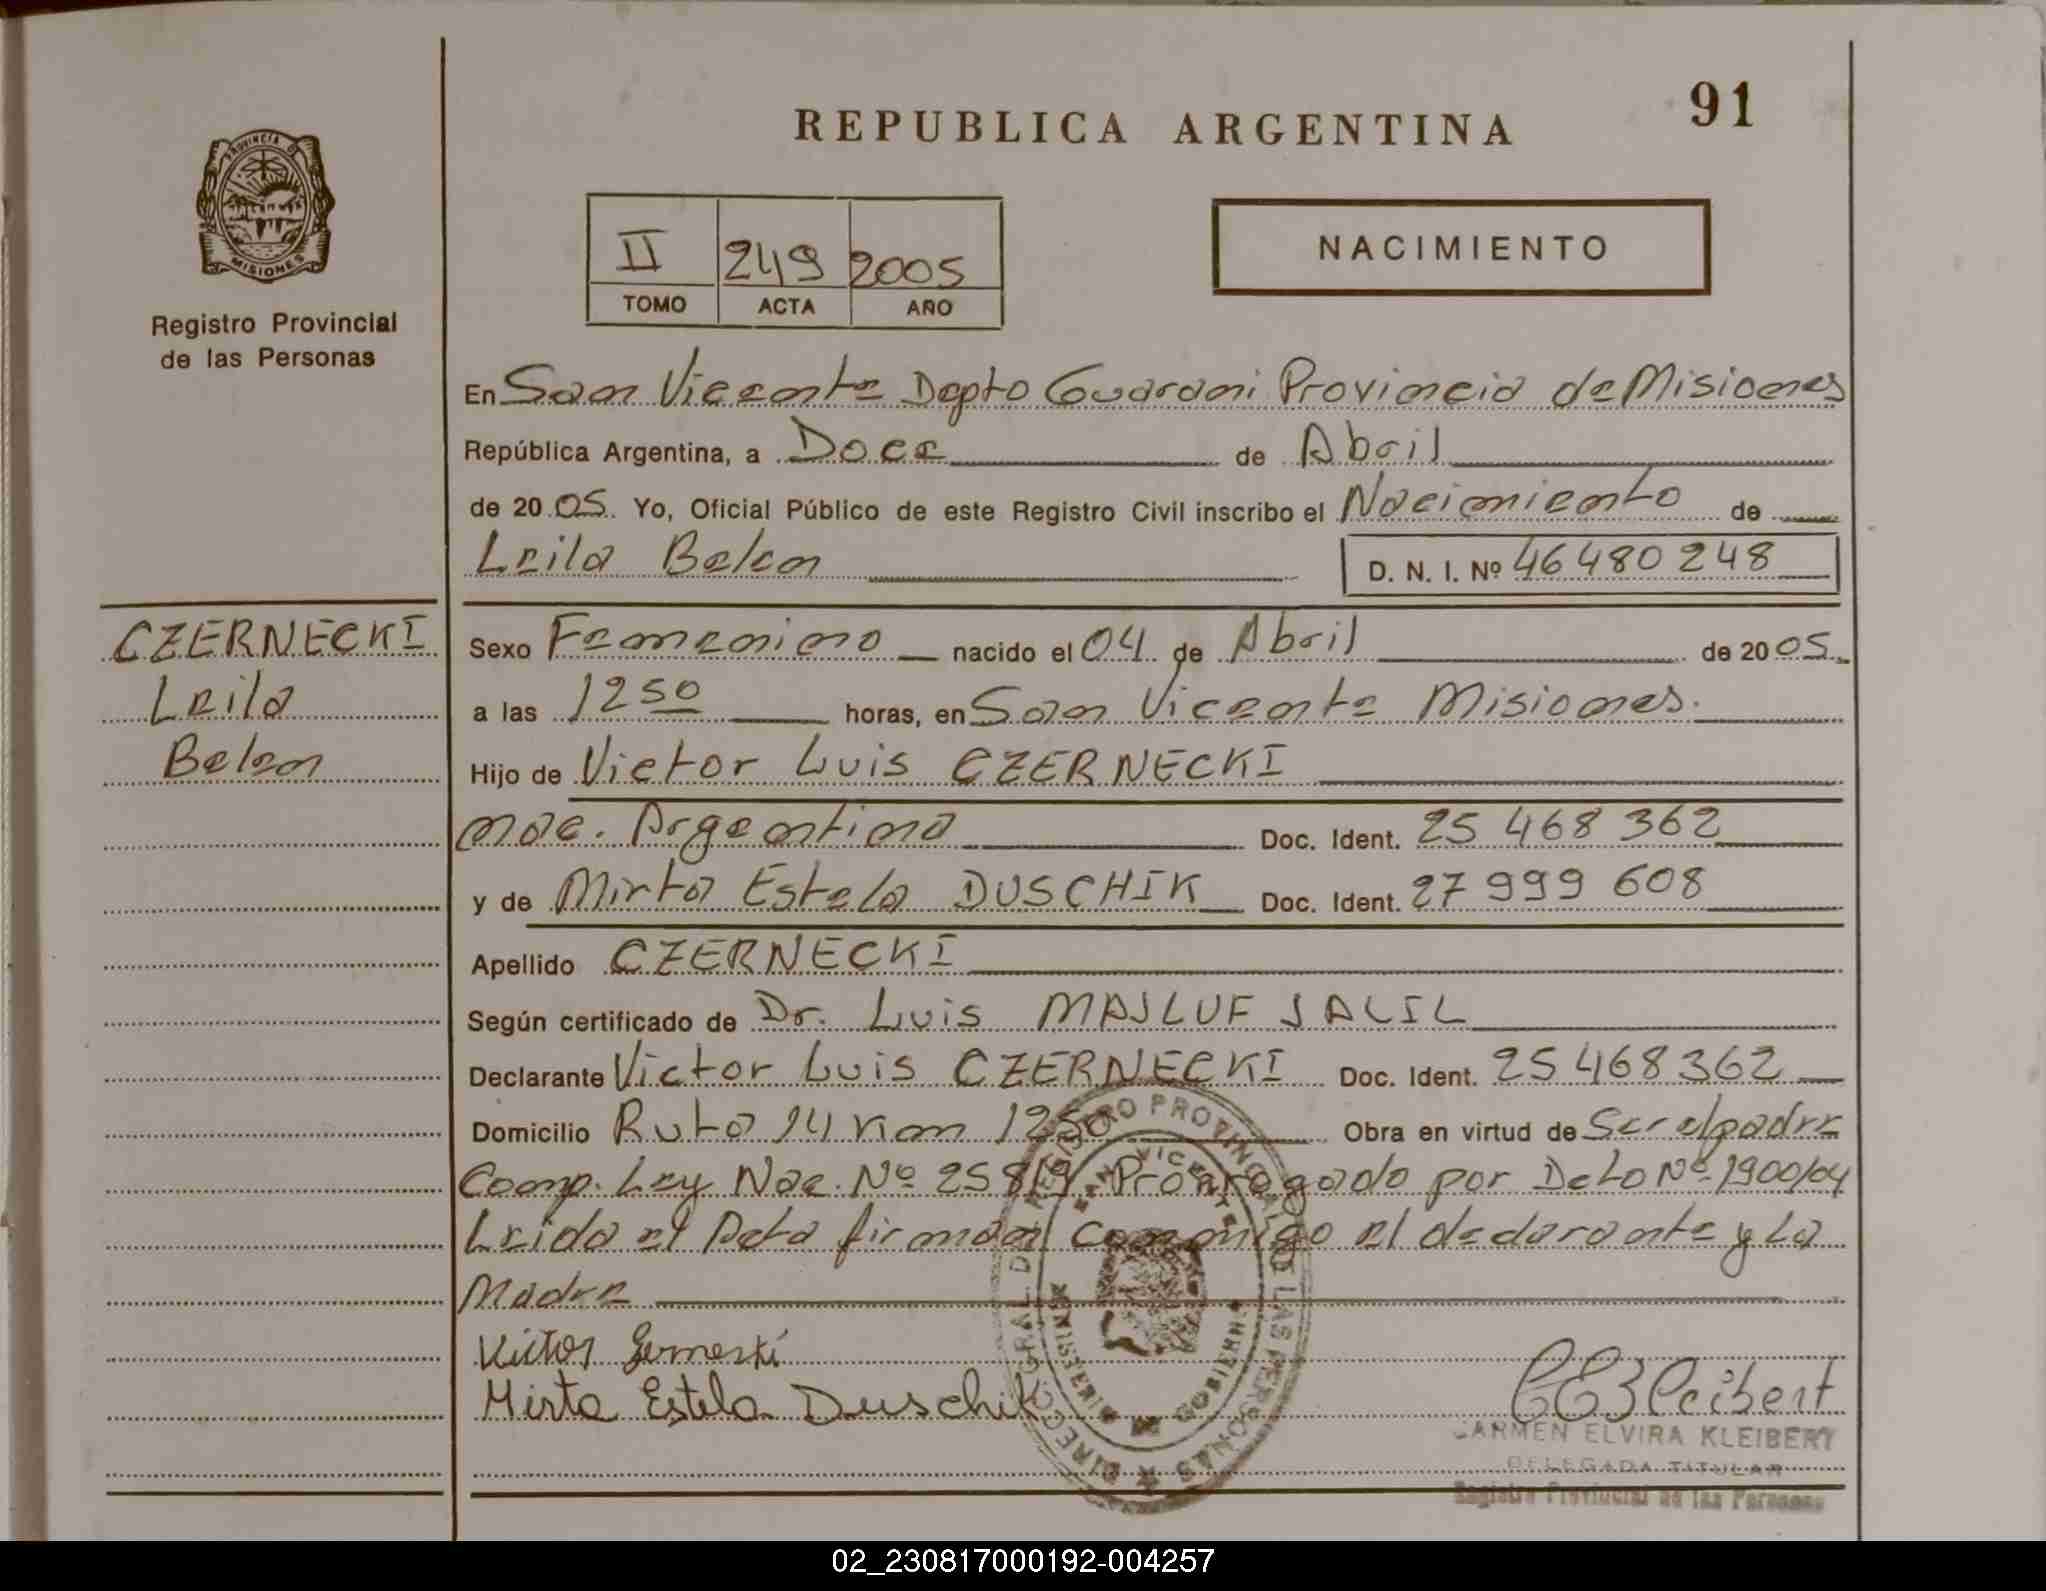 91
REPUBLICA ARGENTINA
PROVINCIA DE
MISIONES
Registro Provincial
de las Personas
II 249 2005
TOMO ACTA AÑO
NACIMIENTO
En San Vicente Depto Guarani Provincia de Misiones
República Argentina, a Doce de Abril
de 2005. Yo, Oficial Público de este Registro Civil inscribo el Nacimiento de
Leila Belen D. N. I. Nº 46480248
CZERNECKI
Leila
Belen
Sexo Femenino nacido el 04 de Abril de 2005
a las 12 50 horas, en San Vicente Misiones.
Hijo de Victor Luis CZERNECKI
nac. Argentina Doc. Ident. 25 468 362
y de Mirta Estela DUSCHIK Doc. Ident. 27 999 608
Apellido CZERNECKI
Según certificado de Dr. Luis MAJLUF JALIL
Declarante Victor Luis CZERNECKI Doc. Ident. 25 468 362
Domicilio Ruta 14 Km 1250 Obra en virtud de Ser el padre
Comp. Ley Nac. Nº 25819 Prorrogado por Dcto Nº 1900/04
Leida el Acta firman conmigo el declarante y La
Madre
Victor
Mirta Estela Duschik
CARMEN ELVIRA KLEIBERT
DELEGADA TITULAR
Registro Provincial de las Personas
DIRECC. GRAL. DEL REGISTRO PROVINCIAL DE LAS PERSONAS
SAN VICENTE
MINISTERIO DE GOBIERNO
02_230817000192-004257